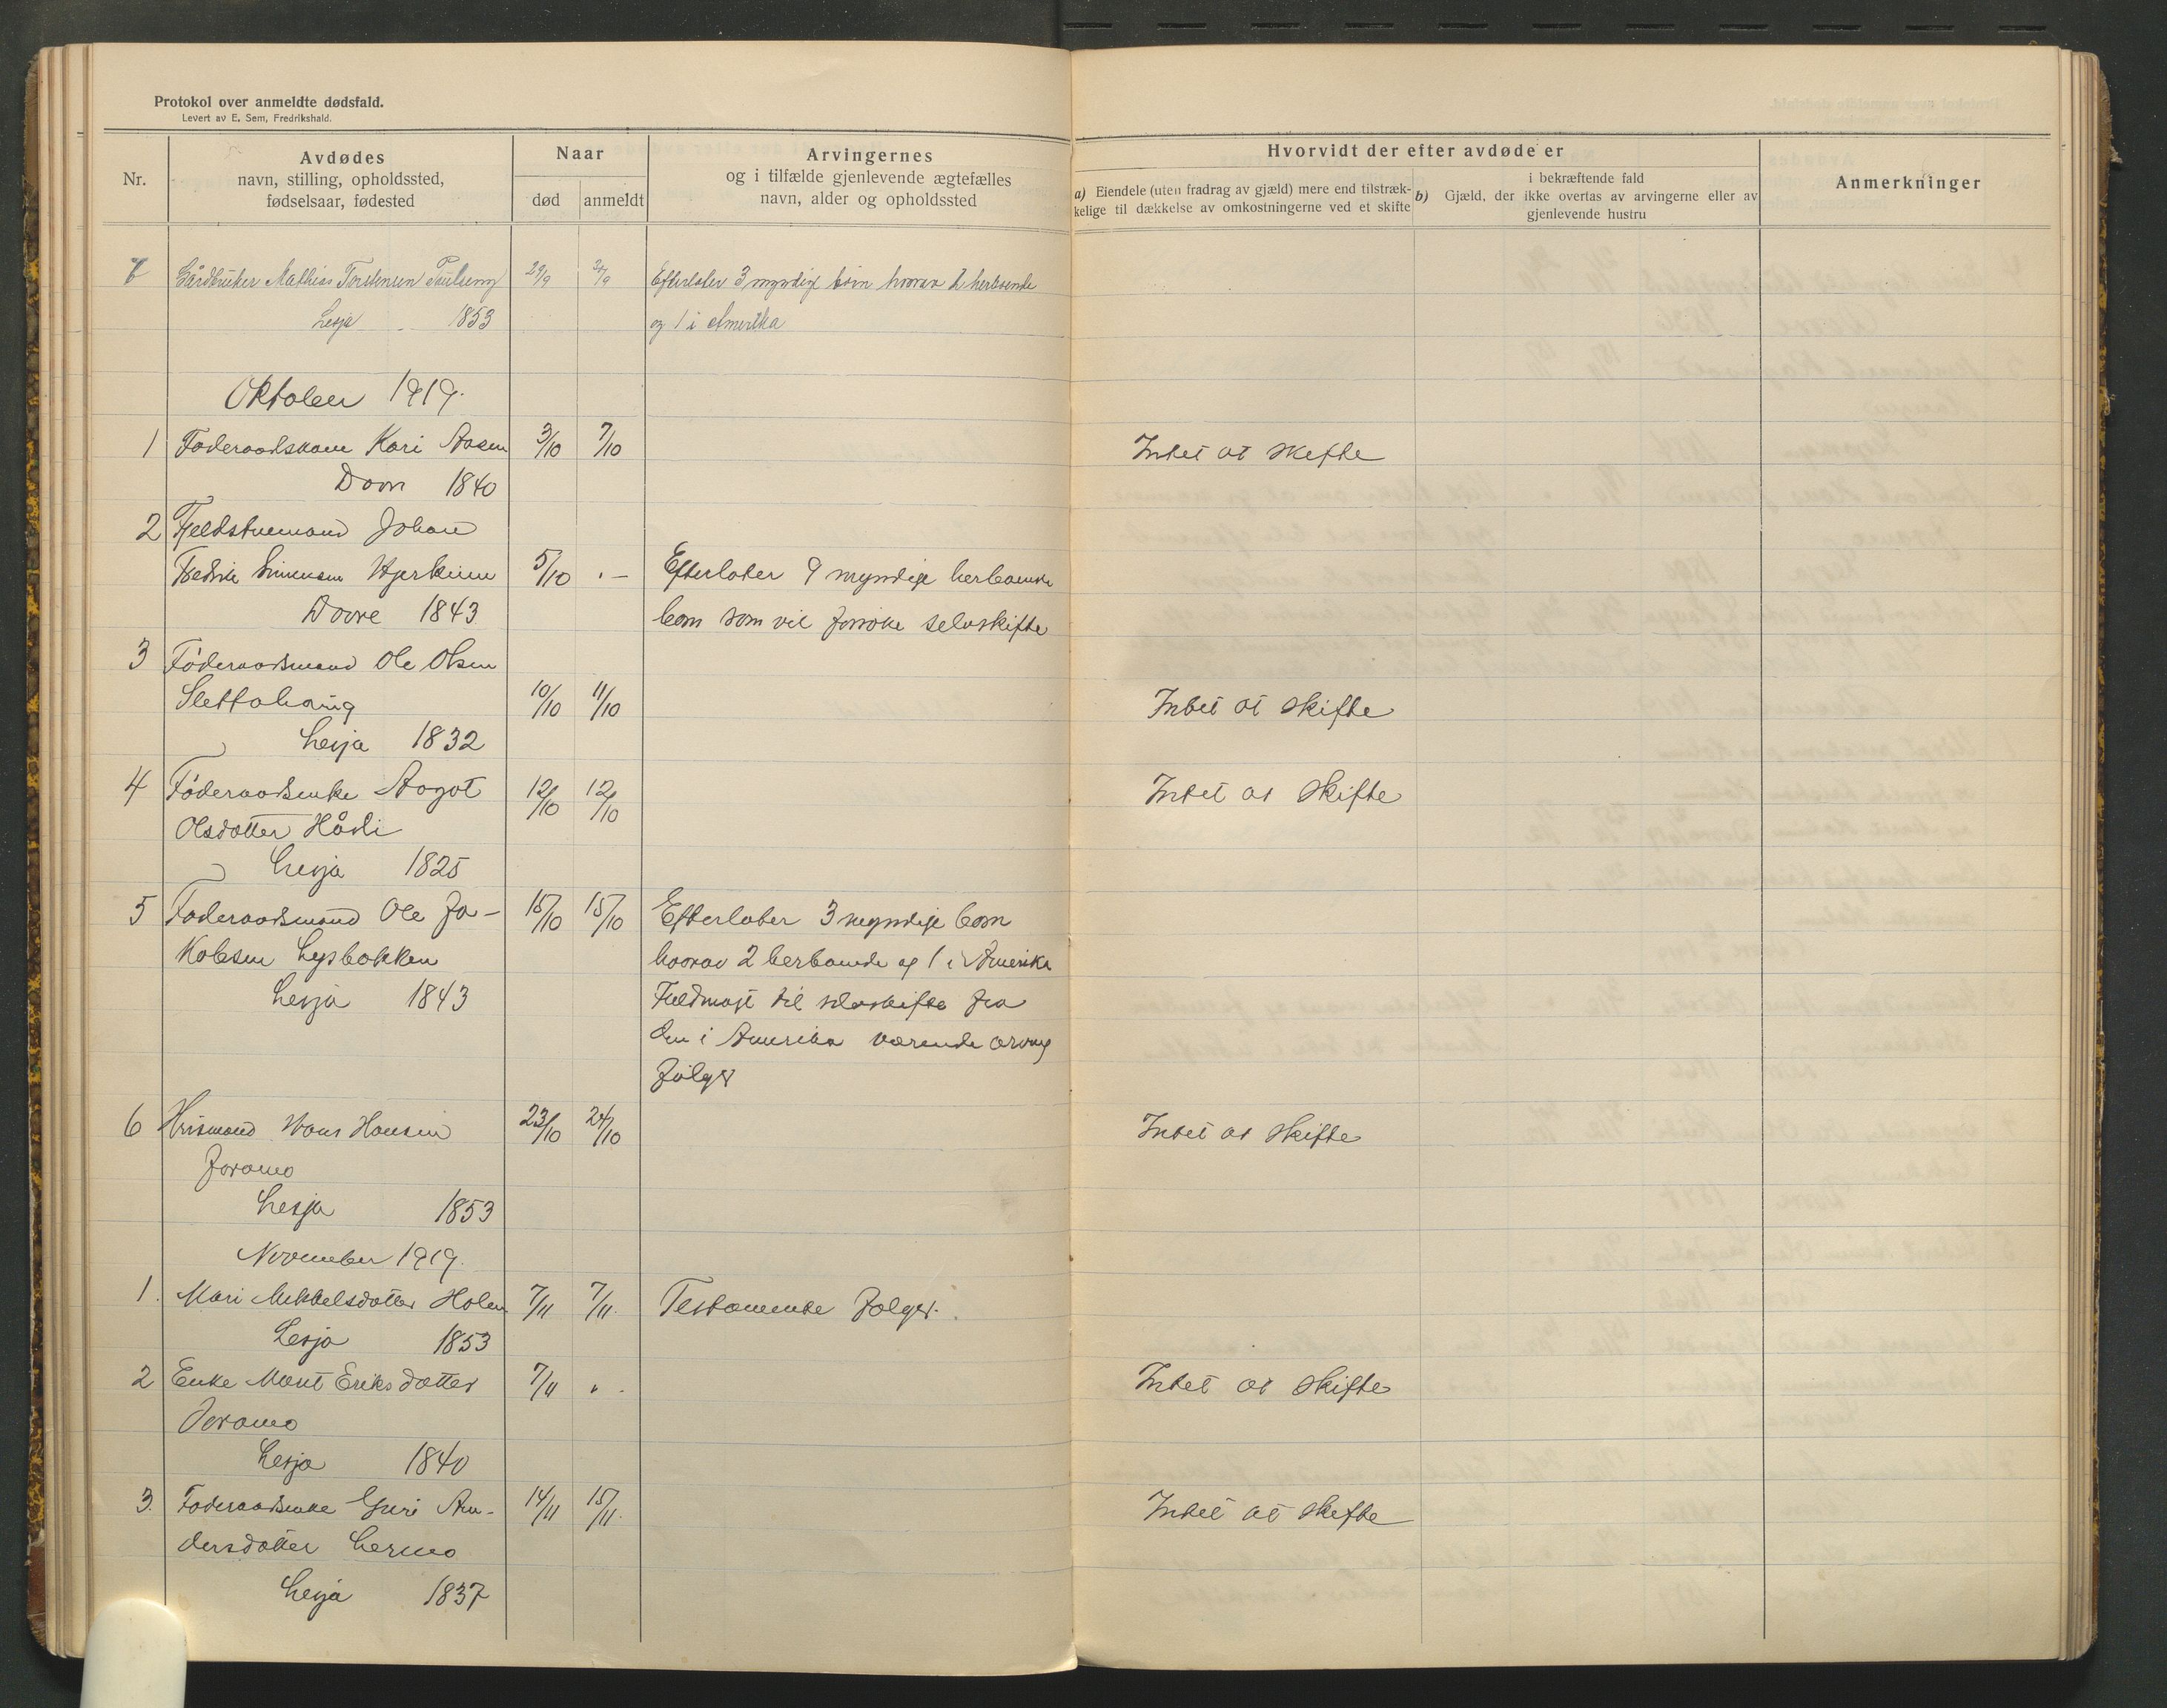 Protokol over anmeldte dødsfald.
Levert av E. Sem, Fredrikshald.
Nr.
Avdødes
navn, stilling, opholdssted,
fødselsaar, fødested
Naar
død
anmeldt
Arvingernes
og i tilfælde gjenlevende ægtefælles
navn, alder og opholdssted
Hvorvidt der efter avdøde er
a) Eiendele (uten fradrag av gjæld) mere end tilstræk-
kelige til dækkelse av omkostningerne ved et skifte
i bekræftende fald
b) Gjæld, der ikke overtas av arvingerne eller av
gjenlevende hustru
Anmerkninger
Gårdbruker Mathias Torstensen 29/9 Efterlater 3 myndige børn hvorav 2 herboende
Lesja 1853 og 1 i Amerika
Oktober 1919.
1 Føderaadskone Kari Aasen 3/10 7/10 Intet at skifte
Dovre 1840
2 Fjeldstuemand Johan
Fredrik Simensen Hjerkinn 5/10 " — Efterlater 9 myndige herboende
Dovre 1843 børn som vil forsøke selvskifte
3 Føderaadsmand Ole Olsen
Slettahaug 10/10 11/10 Intet at skifte
Lesja 1832
4 Føderaadsenke Aagot 12/10 12/10 Intet at skifte
Olsdatter Hådi
Lesja 1825
5 Føderaadsmand Ole Ja- 15/10 15/10 Efterlater 3 myndige børn
kobsen Lysbakken hvorav 2 herboende og 1 i Amerika
Lesja 1843 Fuldmagt til selvskifte fra
den i Amerika værende arving
følger
6 Husmand Hans Hansen 23/10 24/10 Intet at skifte
Joramo
Lesja 1853
November 1919.
1. Mari Mikkelsdatter Holen 7/11 7/11. Testamente følger.
Lesja 1853
2 Enke Marit Eriksdatter 7/11 " - Intet at skifte
Joramo
Lesja 1840
3. Føderaadsenke Guri An- 14/11 15/11. Intet at skifte
dersdatter Lermo
Lesja 1837